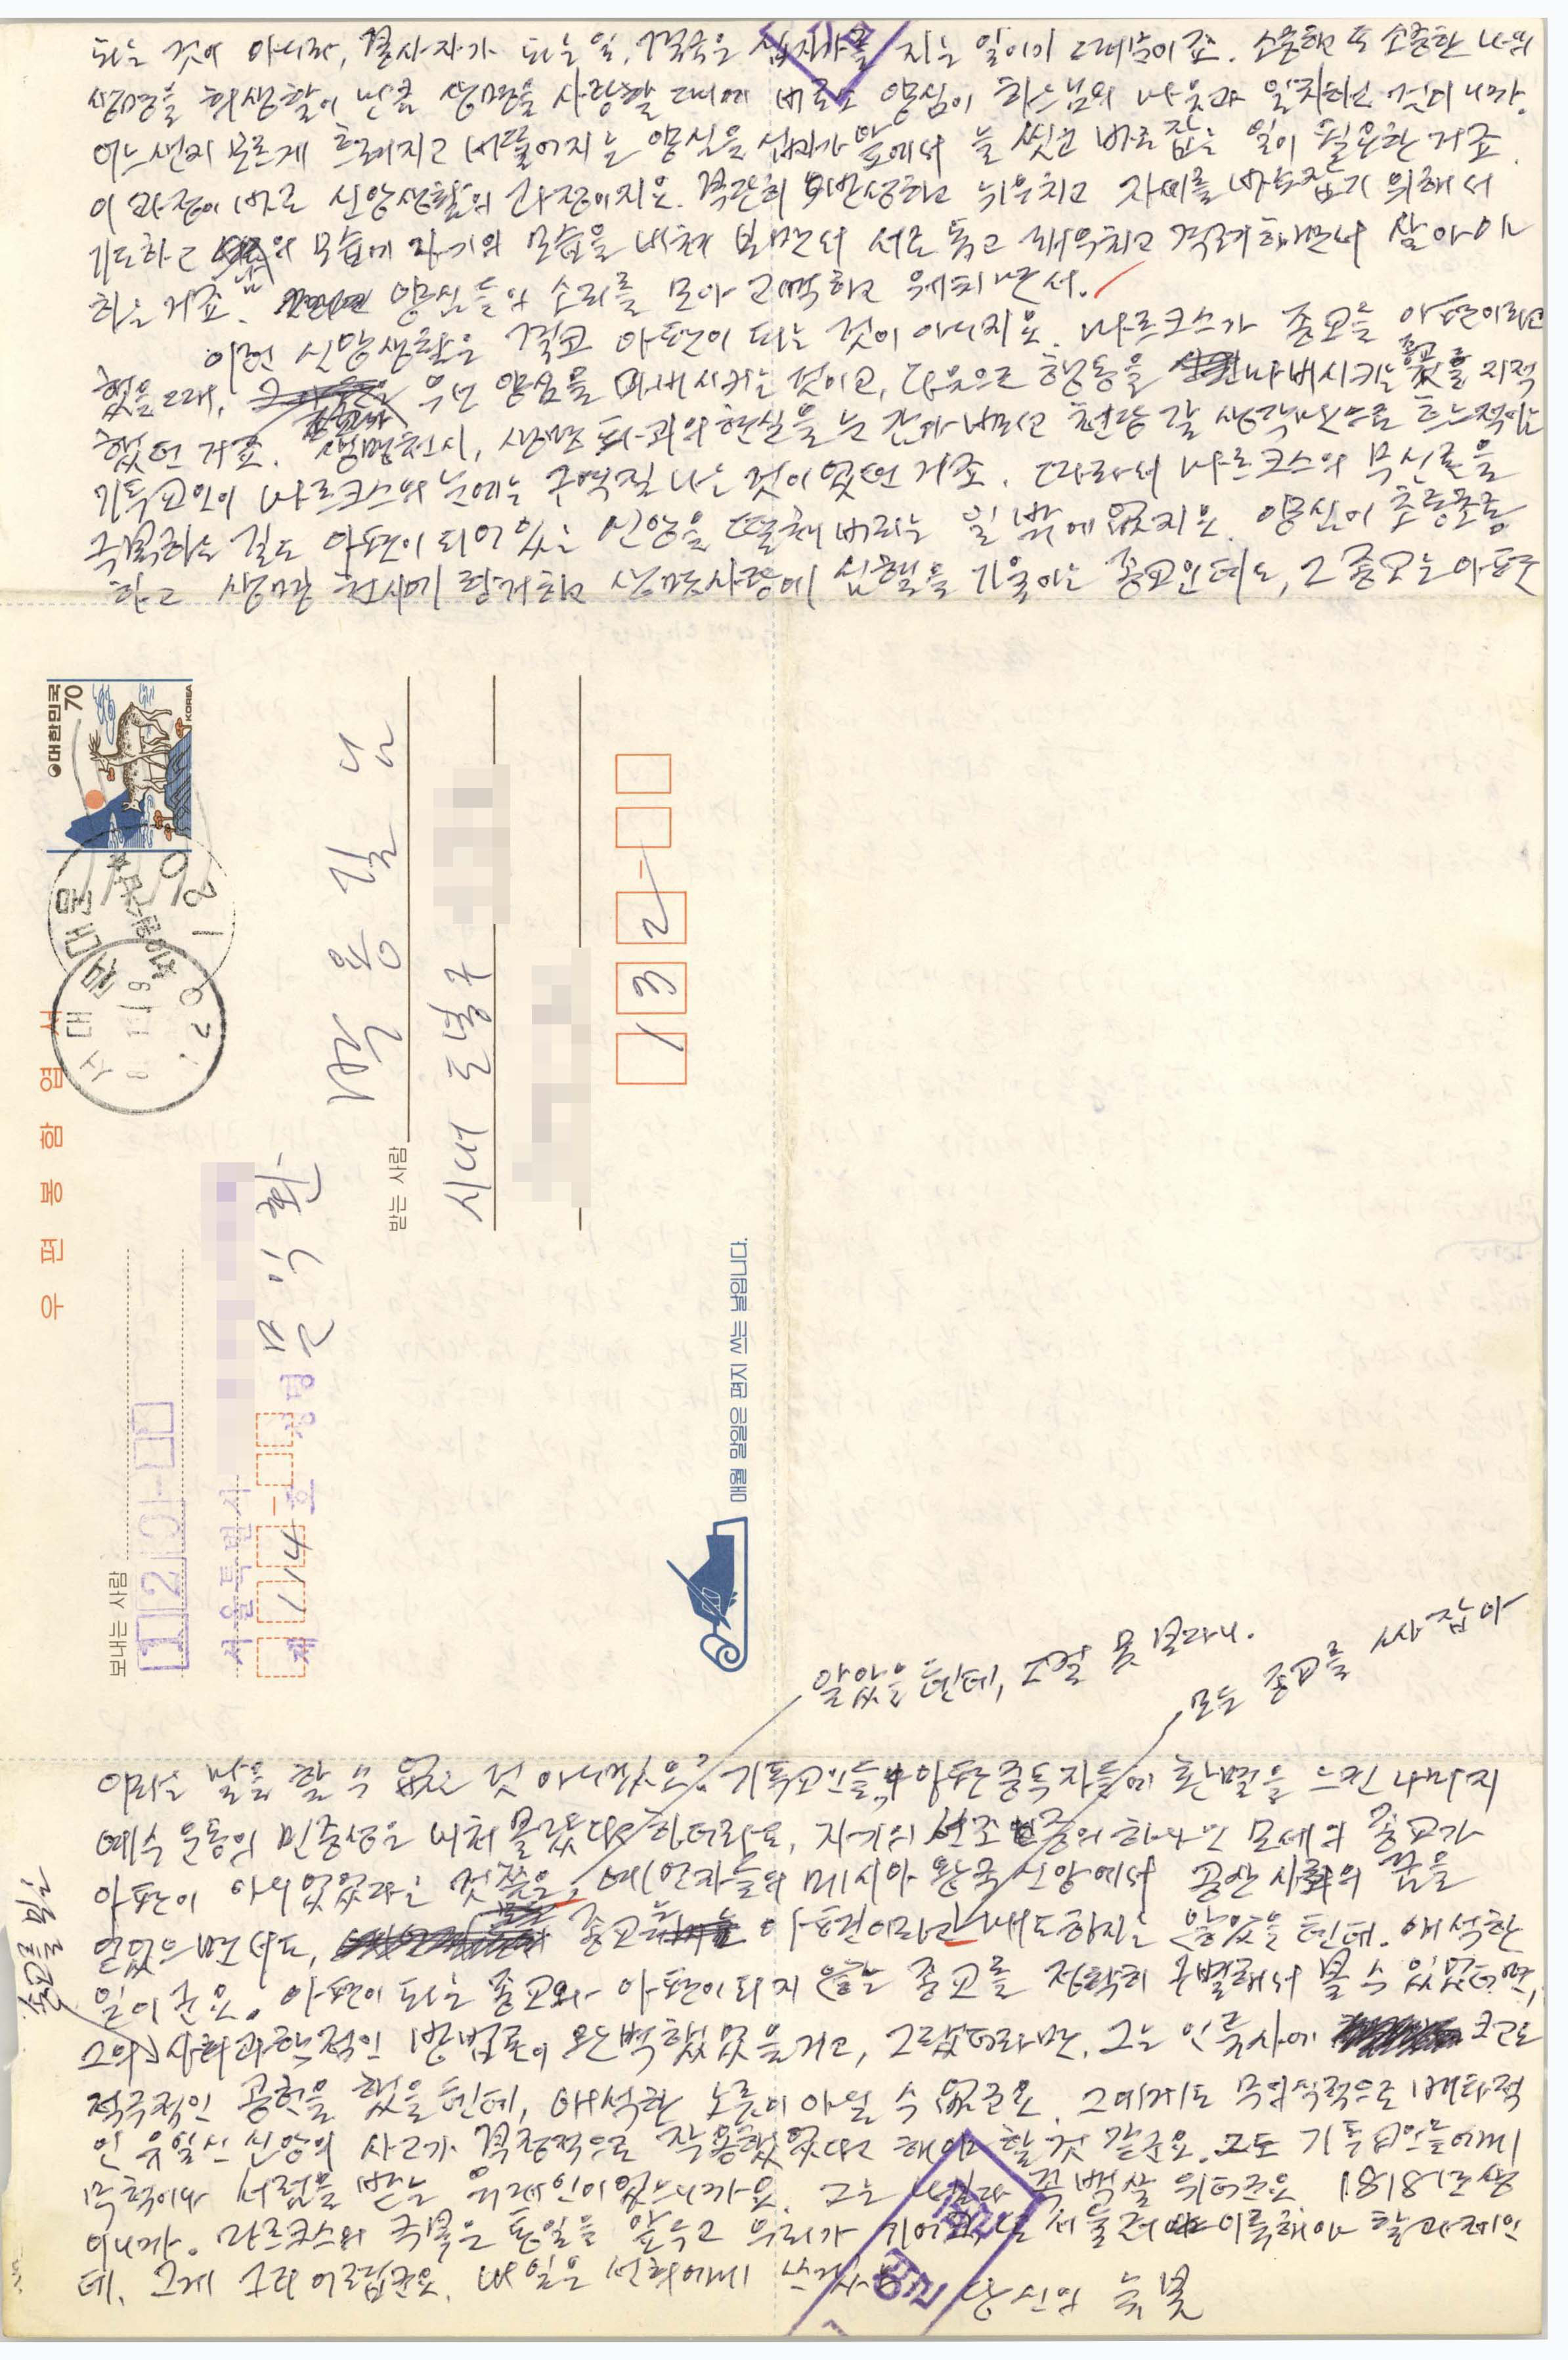 되는 것이 아니라, 결사자가 되는 일, 결국은 십자가를 지는 일이기 때문이죠. 소중하고 또 소중한 나의
생명을 희생할이 만큼 생명을 사랑할 때에 비로소 양심이 하느님의 마음과 일치하는 것이니까.
어느샌지 모르게 흐려지고 비뚤어지는 양심을 십자가 앞에서 늘 씻고 바로잡는 일이 필요한 거죠.
이 과정이 바로 신앙생활의 과정이지요. 격란히 반성하고 뉘우치고 자세를 바로잡기 위해서
기도하고 의 모습에 자기의 모습을 비춰 보면서 서로 돕고 깨우치고 격려하면서 살아야
하는 거죠. 양심들의 소리를 모아 고백하고 외치면서.
이런 신앙생활은 결코 아편이 되는 것이 아니지요. 마르크스가 종교를 아편이라고
했을 때, 우선 양심을 마비시키는 것이고, 다음으로 행동을 마비시키는 종교를 지적
했던 거죠. 생명천시, 생명파괴의 현실을 눈 감아 버리고 천당 갈 생각만으로 흐느적이는
기독교인이 마르크스의 눈에는 구역질 나는 것이었던 거죠. 따라서 마르크스의 무신론을
극복하는 길도 아편이 되어 있는 신앙을 탈해 버리는 일 밖에 없지요. 양심이 초롱초롱
하고 생명 천시에 항거하고 생명사랑에 심혈을 기울이는 종교인데도, 그 종교는 아편
대한민국 70
KOREA
서대문
우편봉함엽서
보내는 사람
120-
서울특별시
제 호
174
성명
문익환
받는 사람
박용길 님
시내 도봉구
132-
매월 말일은 편지 쓰는 날입니다.
알았을 텐데, 그걸 못 보다니.
모든 종교를 싸잡아
이라는 말을 할 수 없는 것 아니겠어요? 기독교인들, 아편중독자들에 환멸을 느낀 나머지
예수 운동의 민중성은 미처 몰랐다고 하더라도, 자기의 선조 중의 하나인 모세의 종교가
아편이 아니었었다는 것쯤은, 예언자들의 메시아 왕국 신앙에서 공산사회의 꿈을
얻었으면서도, 종교를 아편이라고 매도하지는 않았을 텐데. 애석한
일이군요. 아편이 되는 종교와 아편이 되지 않는 종교를 정확히 구별해서 볼 수 있었더면,
그의 사회과학적인 방법론이 완벽했었을 거고, 그랬더라면, 그는 인류사에 크고도
적극적인 공헌을 했을 텐데, 애석한 노릇이 아닐 수 없군요. 그에게도 무의식적으로 배타적
인 유일신 신앙의 사고가 결정적으로 작용했었다고 해야 할 것 같군요. 그도 기독교인들에게
박해와 설움을 받는 유대인이었으니까요. 그는 나보다 꼭 백살 위더군요. 1818년생
이니까. 마르크스의 극복은 통일을 앞두고 우리가 기어코 서둘러 이룩해야 할 과제인
데, 그게 그리 어렵군요. 내일은 선희에게 쓰겠어요. 당신의 늦봄